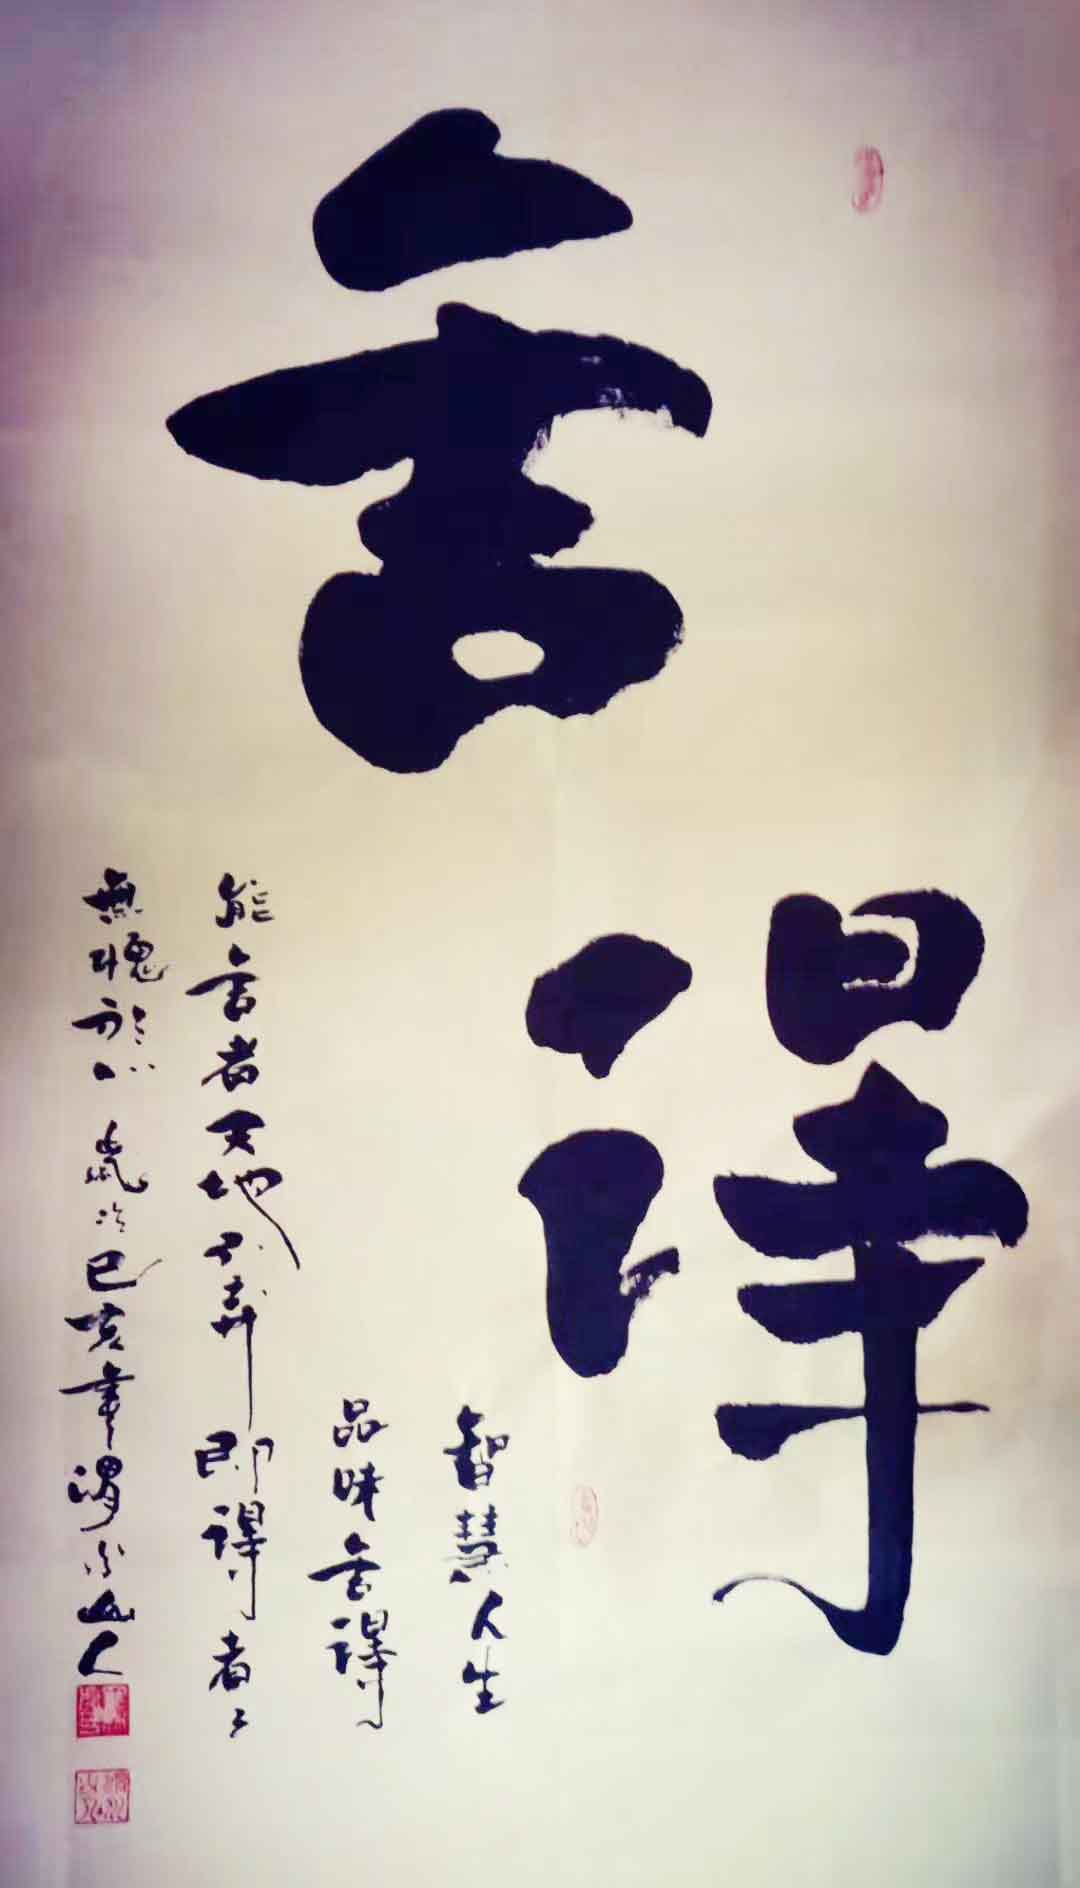 舍得
智慧人生
品味舍得
能舍者天地不弃即得者々
無愧於心 歲次己亥年渭小山人